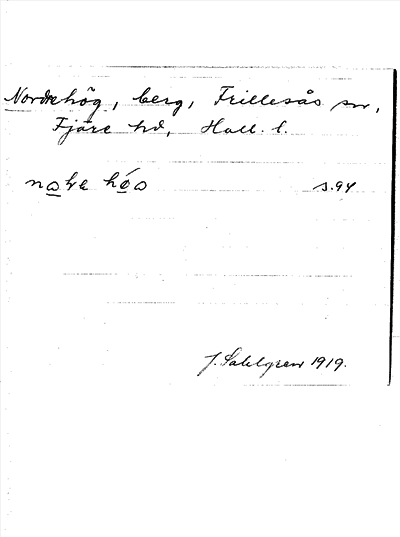 Nordre hög, berg, Frillesås sn,
Fjäre hd, Hall. l.
s.94
J. Sahlgren 1919.